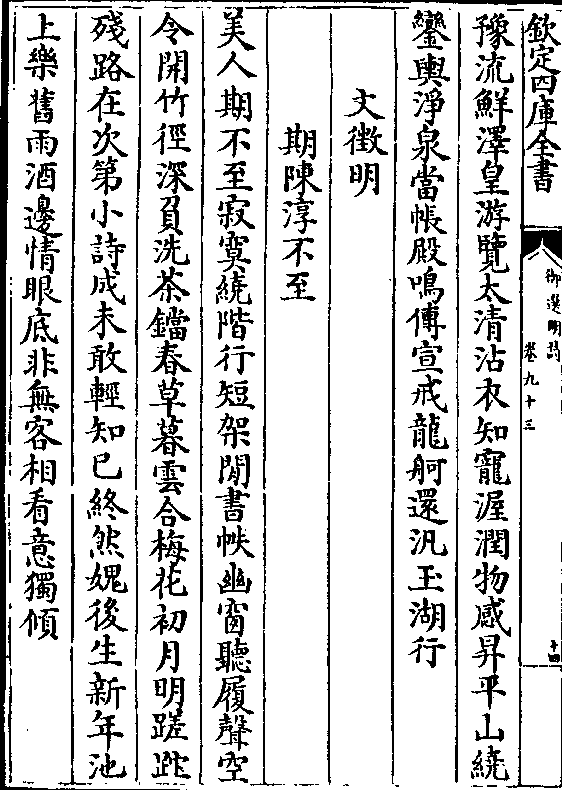 欽定四庫全書
御選明詩
卷九十三
十四
豫流鮮澤皇游覽太清沾衣知寵渥潤物感昇平山繞
鑾輿淨泉當帳殿鳴傅宣戒龍舸還汎玉湖行
文徴明
期陳淳不至
美人期不至寂寞繞階行短架閒書帙幽窗聽履聲空
令開竹徑深負洗茶鐺春草暮雲合梅花初月明蹉跎
殘路在次第小詩成未敢輕知已終然媿後生新年池
上樂舊雨酒邊情眼底非無客相看意獨傾